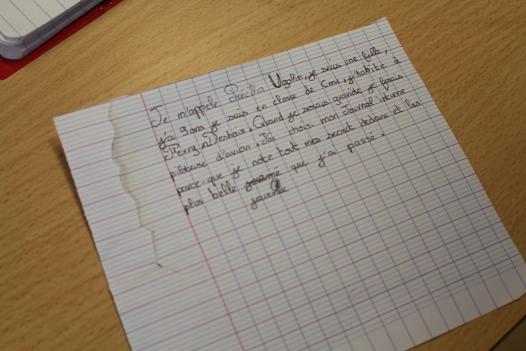 Je m'appele Ugolin, je suis une fille,
j'ai 9 ans je suis en classe de cm1, j'habite à
Quand je serais grande je ferais
piloteuse d'avion. J'ai choisi mon Journal intime
parce-que je note tout mes secret dedans et les
plus belle que j'ai passé.
journée